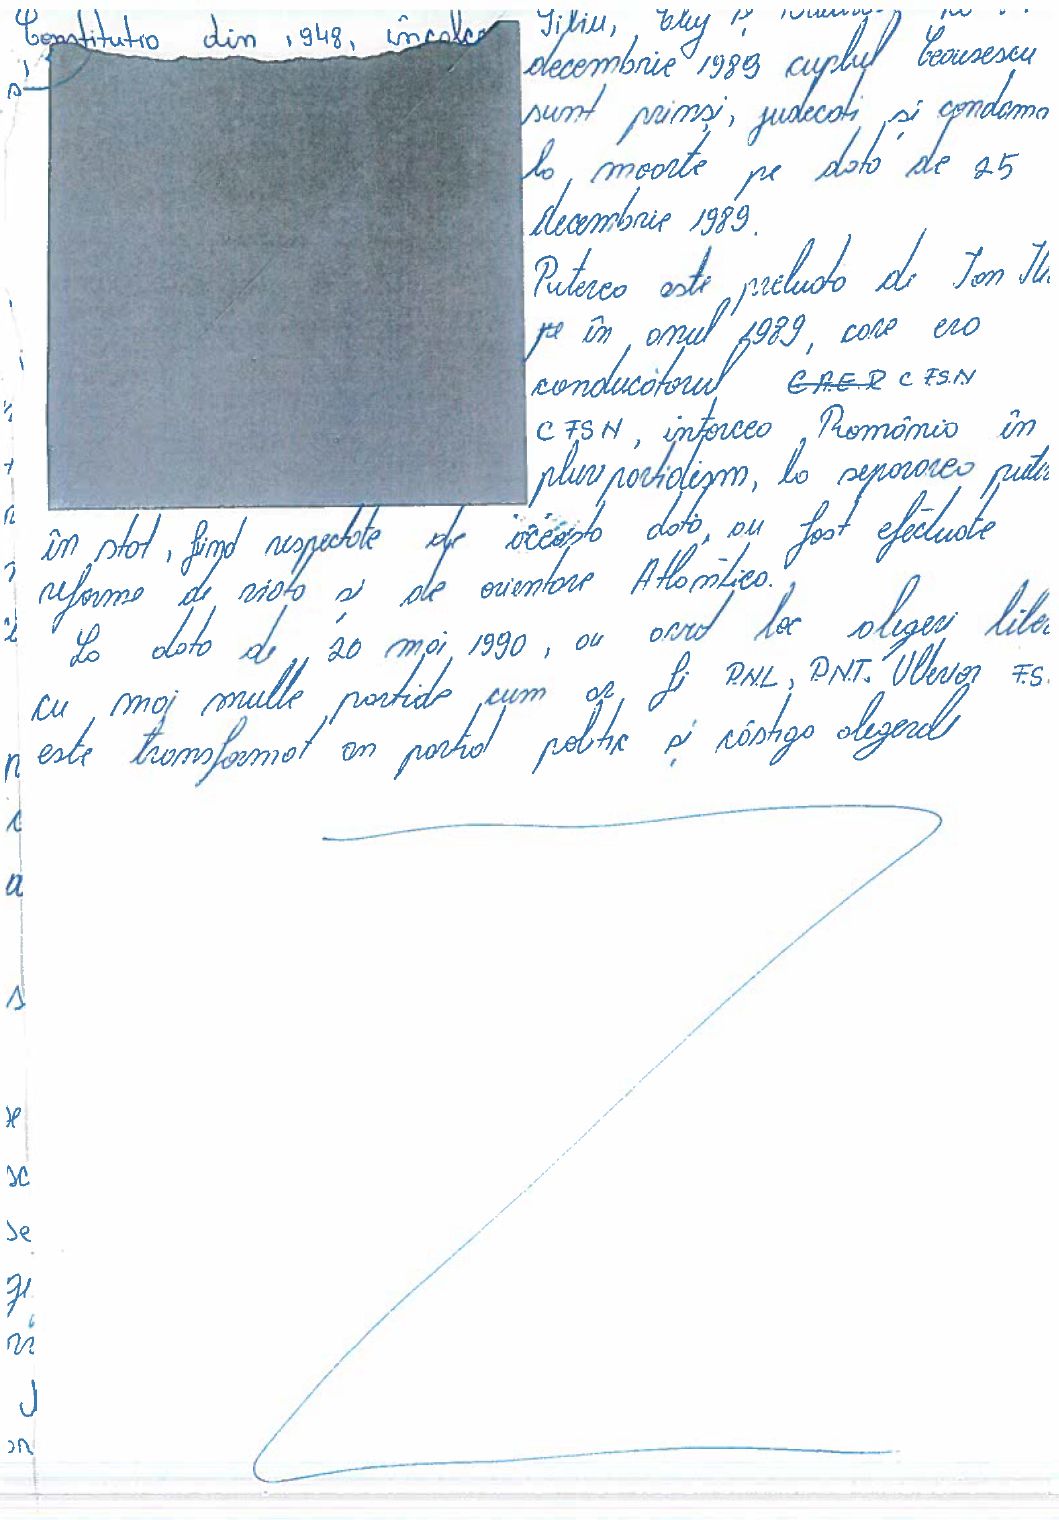 Constitutia din 1948, încalca
Sibiu, Cluj și
decembrie 1989 cuplul Ceausescu
sunt prinși, judecati și condamn
la moarte pe data de 25
decembrie 1989.
Puterea este preluata de Ion Ili
pe în anul 1989, care era
conducatorul C.A.E.R C F.S.N
C F S N, intorcea România în
pluripartidism, la separarea puter
în stat, fiind respectate de aceasta data, au fost efectuate
reforme de viata si de orientare Atlantica.
La data de 20 mai 1990, au avut loc alegeri liber
cu mai multe partide cum ar fi P.N.L, P.N.T. Ulterior F.S.
este transformat an partid politic și câstiga alegerile